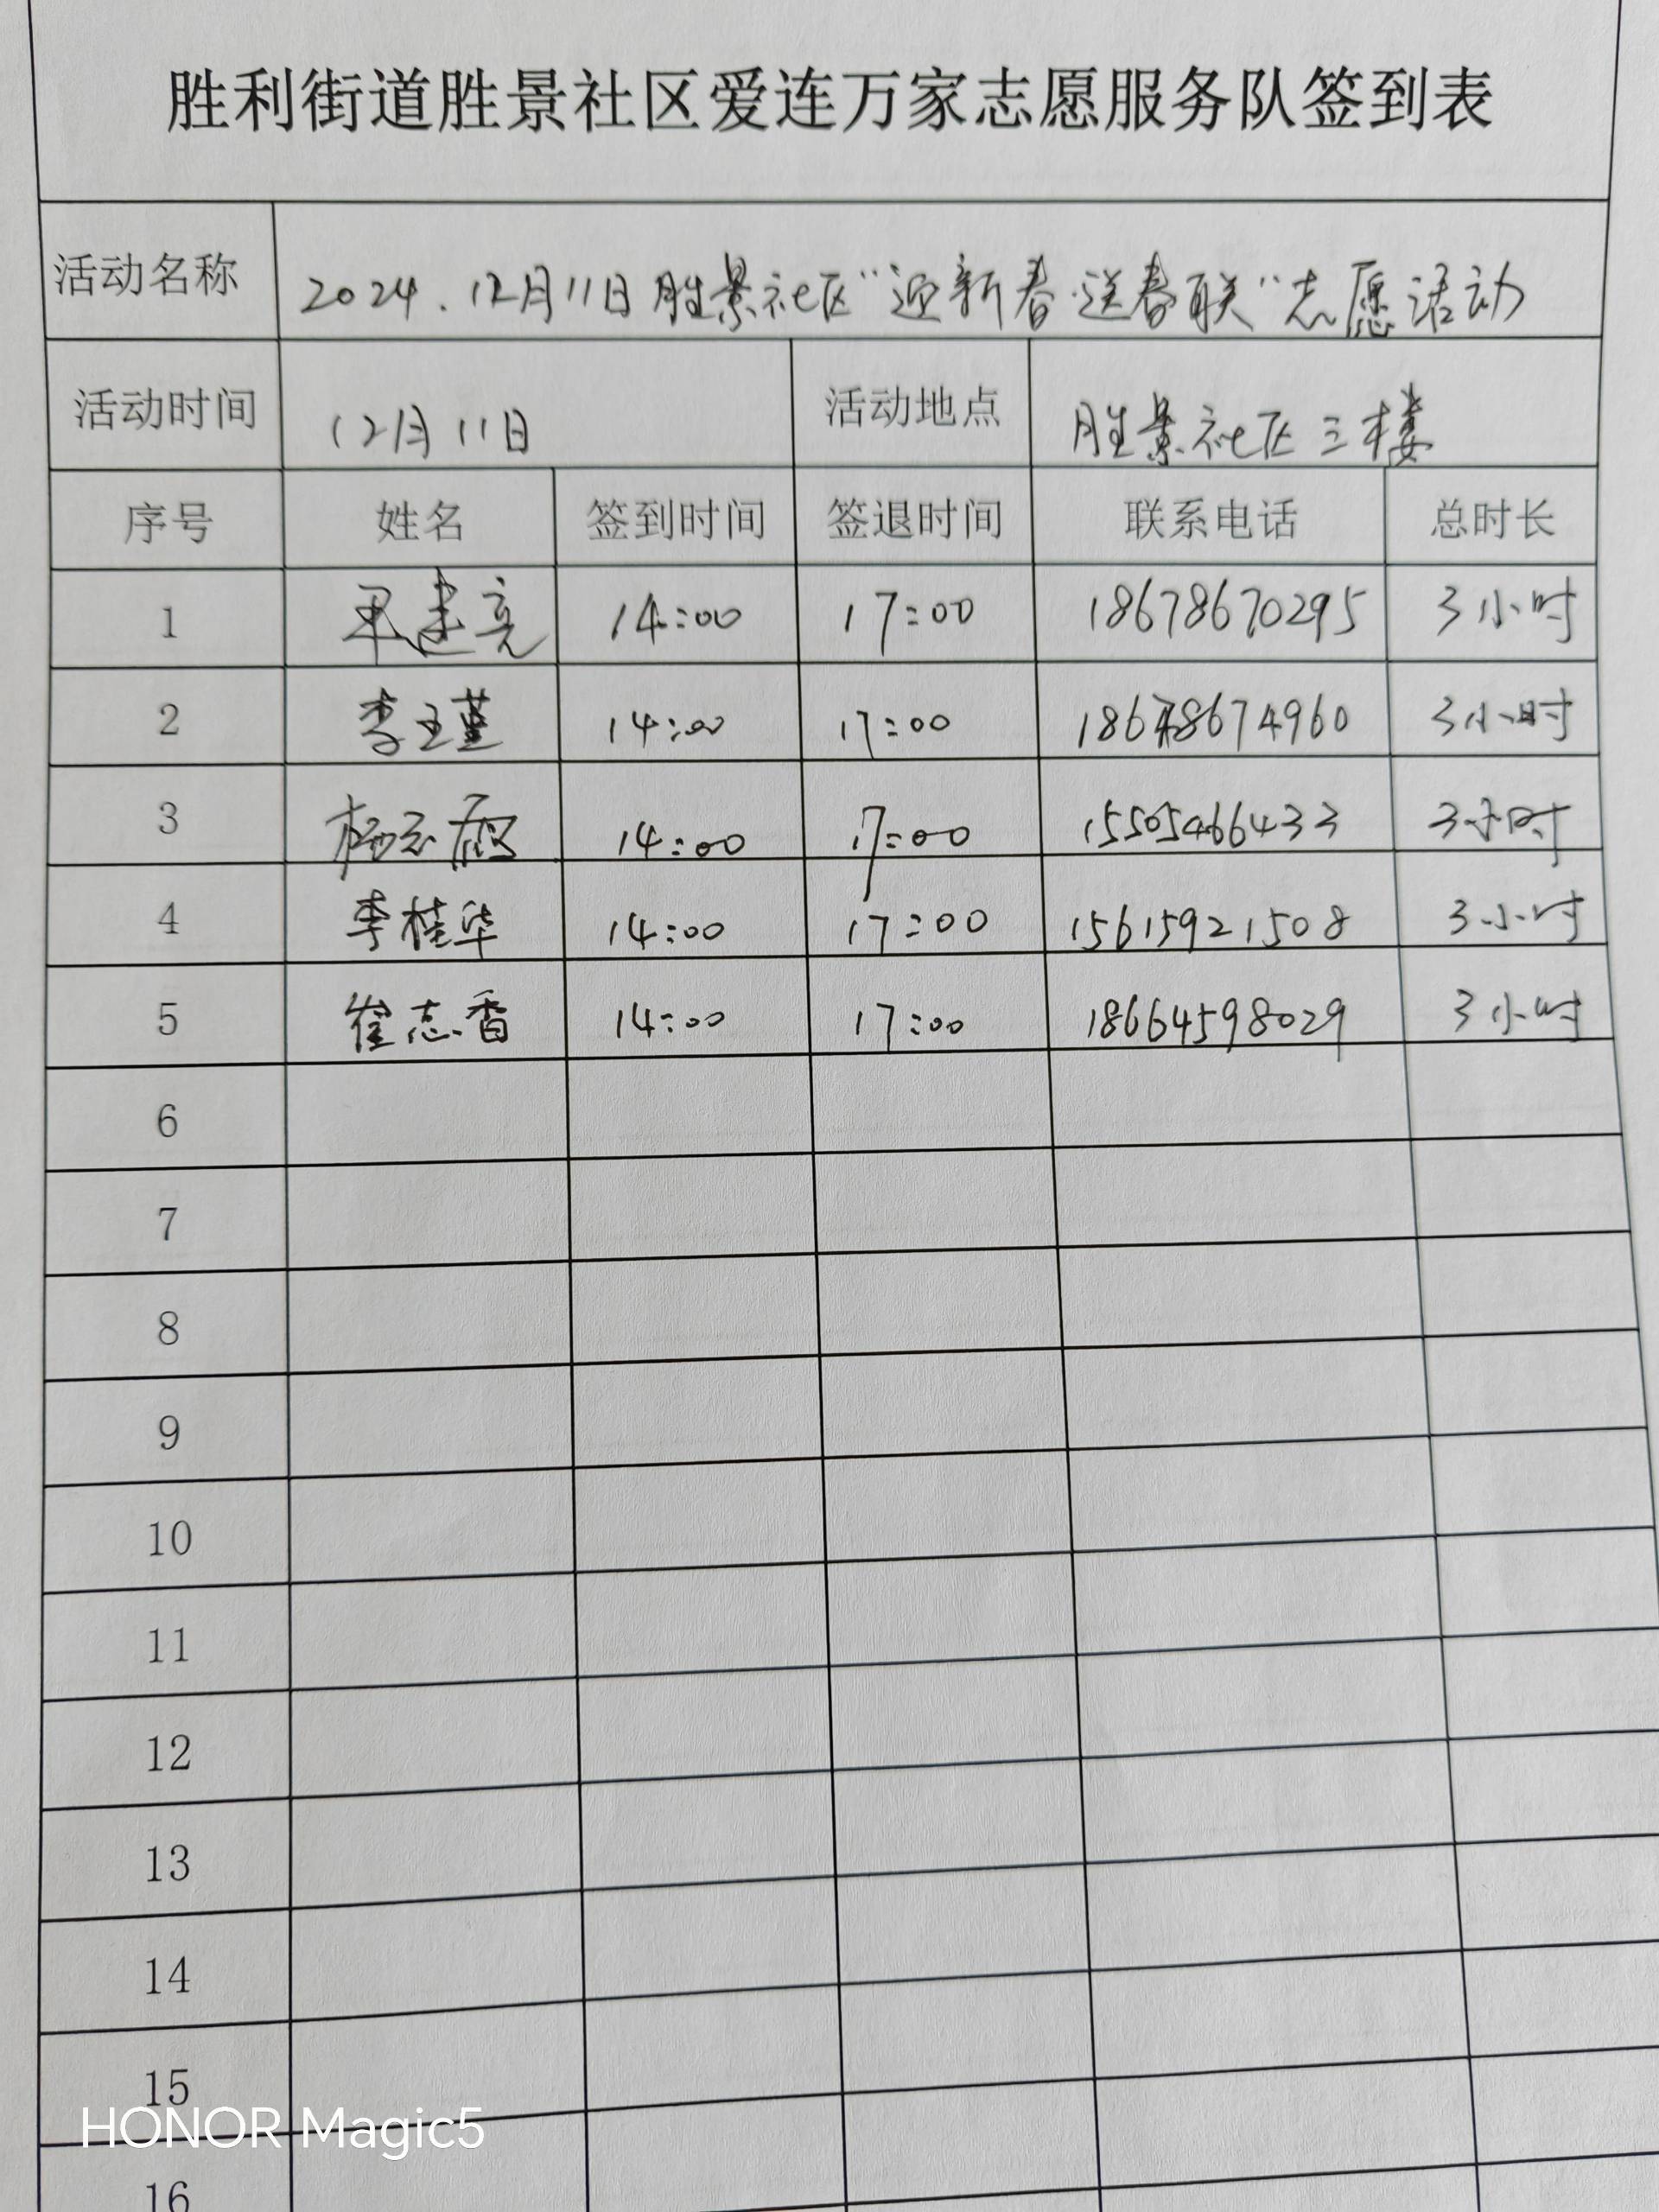 胜利街道胜景社区爱连万家志愿服务队签到表
活动名称 2024.12月11日胜景社区“迎新春·送春联”志愿活动
活动时间 12月11日 活动地点 胜景社区三楼
序号 姓名 签到时间 签退时间 联系电话 总时长
1 建亮 14:00 17:00 18678670295 3小时
2 李玉瑾 14:00 17:00 18678674960 3小时
3 杨 14:00 17:00 15505466433 3小时
4 李桂华 14:00 17:00 15615921508 3小时
5 崔志香 14:00 17:00 18664598029 3小时
6
7
8
9
10
11
12
13
14
15
HONOR Magic5
16